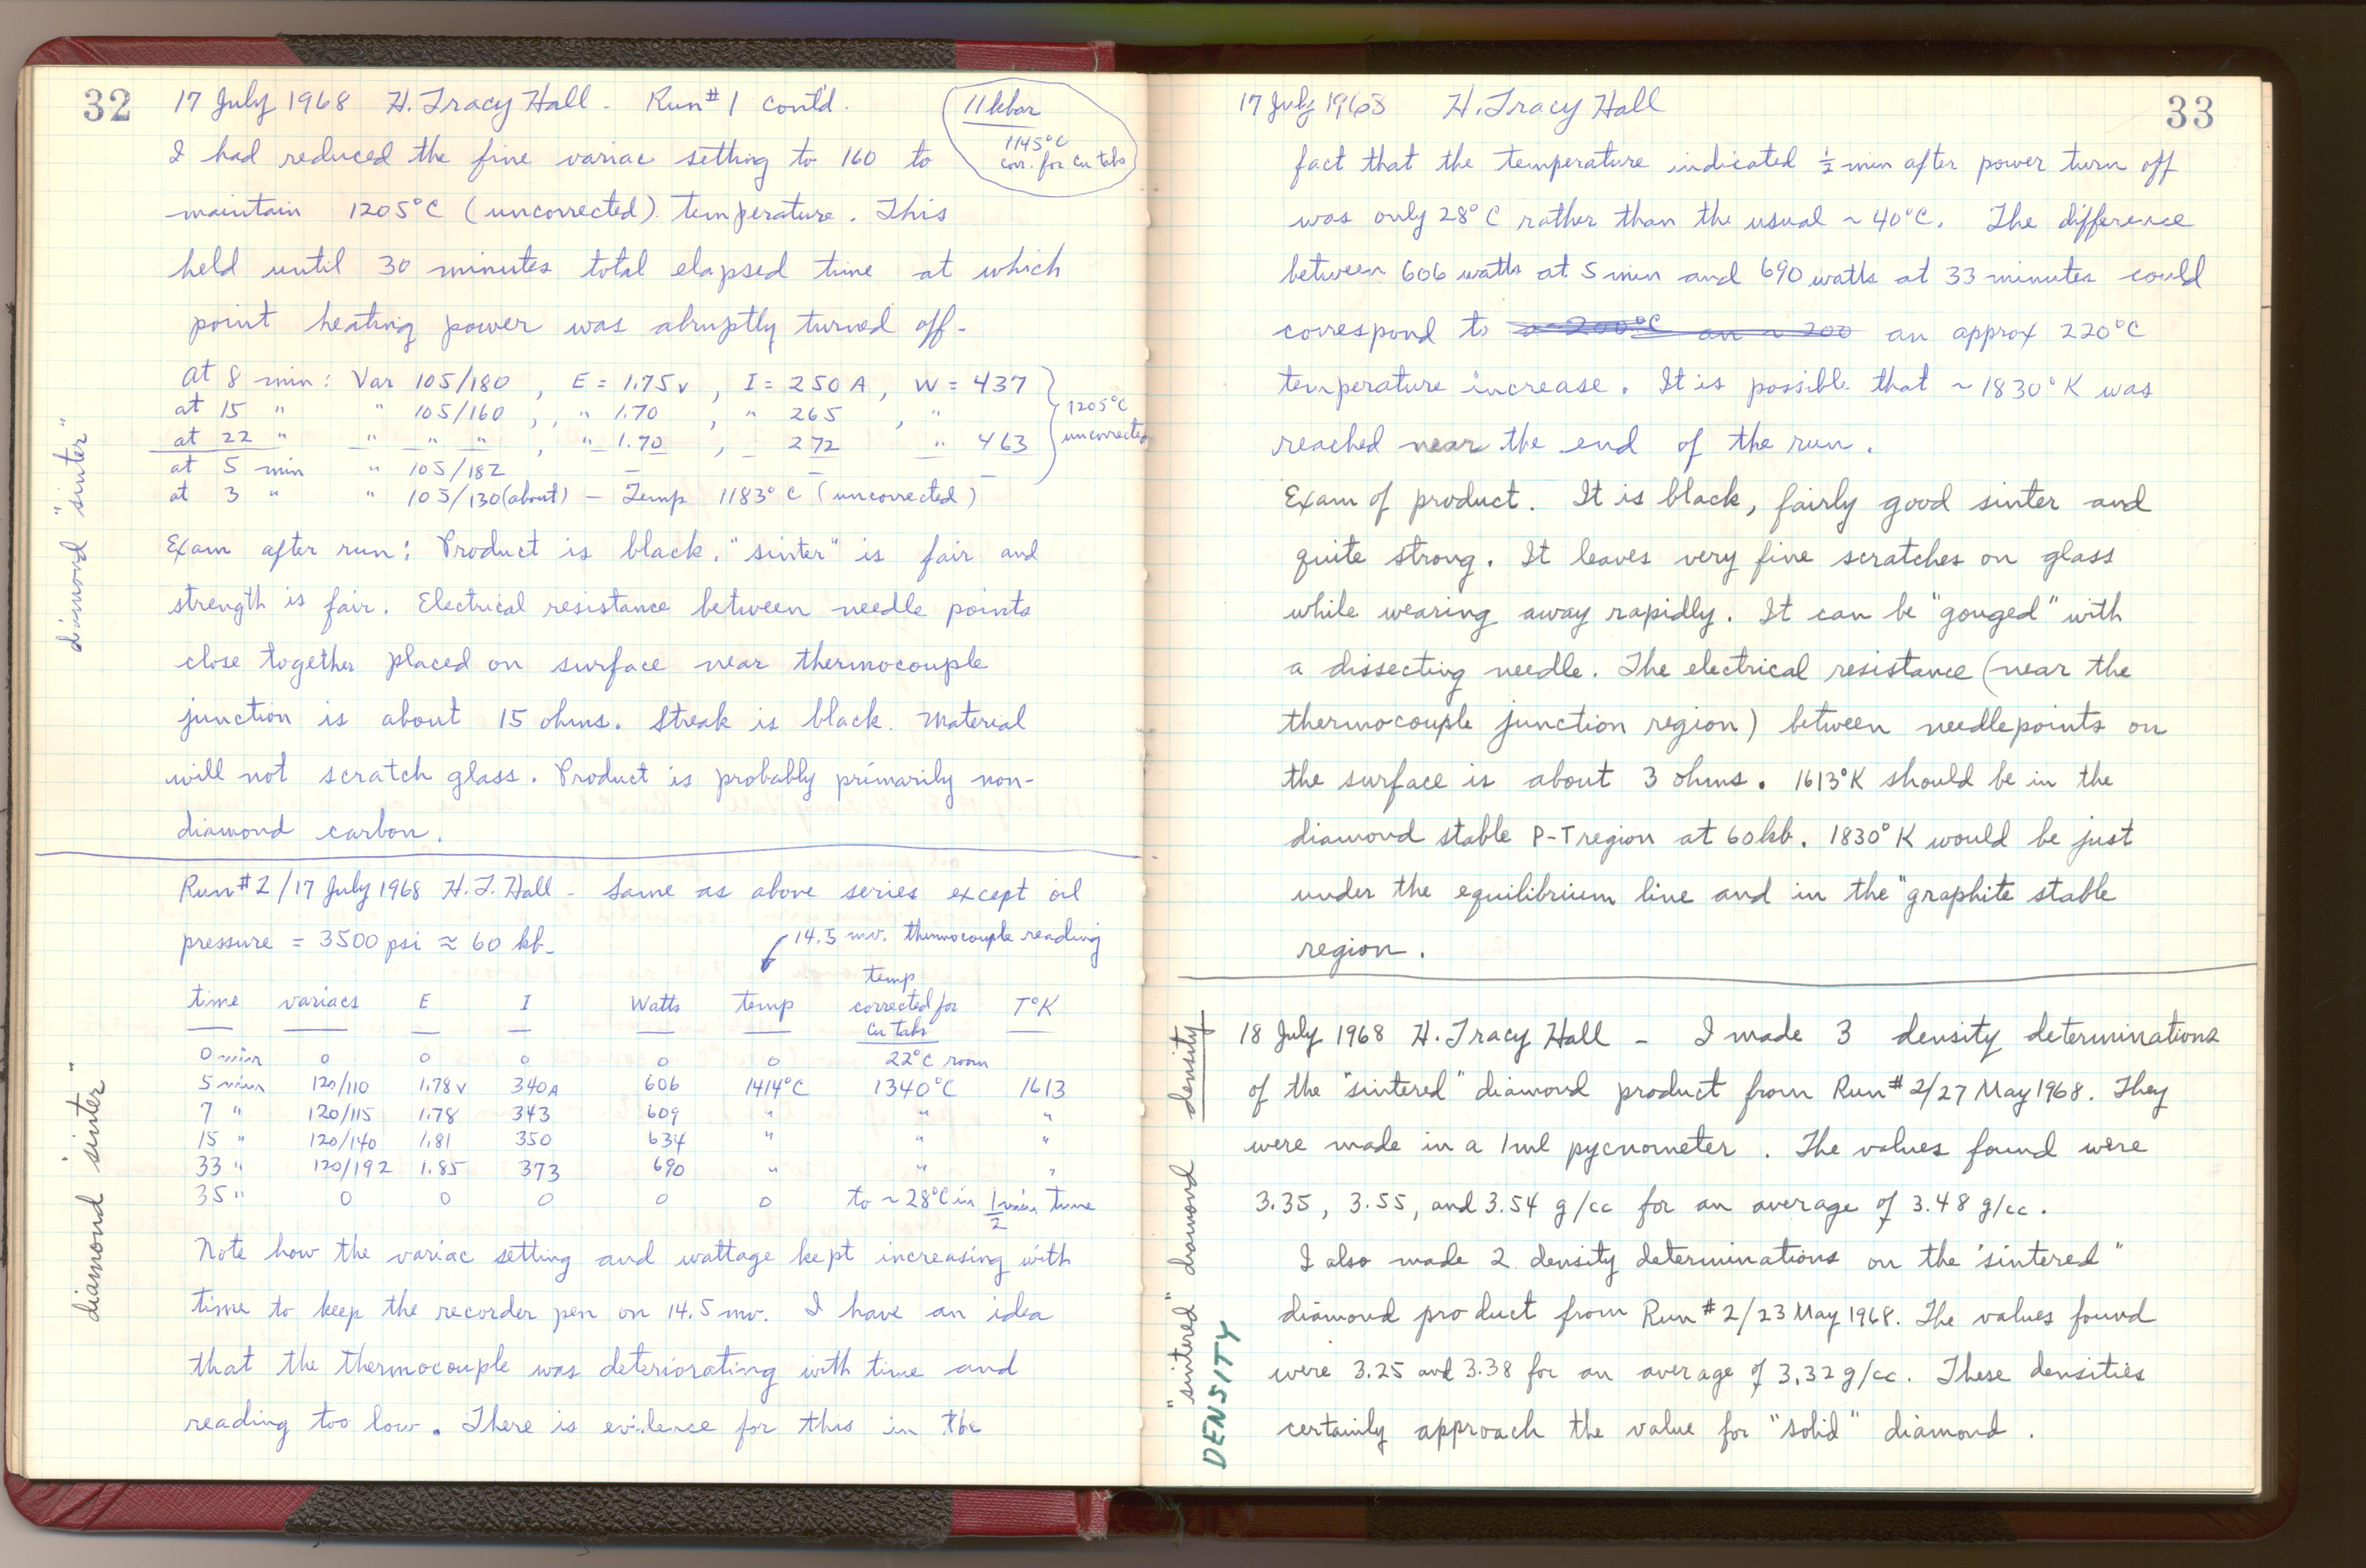 32
17 July 1968 H. Tracy Hall - Run #1 cont'd.
11 kbar
1145°C
corr. for Cu tabs
I had reduced the fine variac setting to 160 to
maintain 1205°C (uncorrected) temperature. This
held until 30 minutes total elapsed time at which
point heating power was abruptly turned off.
At 8 min: Var 105/180, E = 1.75v, I = 250 A, W = 437
at 15 " " 105/160, " 1.70, " 265, "
at 22 " " " ", " 1.70, 272 " 463
1205°C
uncorrected
at 5 min " 105/182 - - -
at 3 " " 105/130 (about) - Temp 1183°C (uncorrected)
diamond "sinter"
Exam after run: Product is black. "sinter" is fair and
strength is fair. Electrical resistance between needle points
close together placed on surface near thermocouple
junction is about 15 ohms. Streak is black. Material
will not scratch glass. Product is probably primarily non-
diamond carbon.
Run #2/17 July 1968 H.T. Hall - Same as above series except oil
pressure = 3500 psi ≈ 60 kb.
14.5 mv. thermocouple reading
time variacs E I Watts temp temp corrected for Cu tabs T°K
0 min 0 0 0 0 0 22°C room
5 min 120/110 1.78v 340A 606 1414°C 1340°C 1613
7 " 120/115 1.78 343 609 " " "
15 " 120/140 1.81 350 634 " " "
33 " 120/192 1.85 373 690 " " "
35 " 0 0 0 0 0 to ~28°C in 1/2 min time
diamond "sinter"
Note how the variac setting and wattage kept increasing with
time to keep the recorder pen on 14.5 mv. I have an idea
that the thermocouple was deteriorating with time and
reading too low. There is evidence for this in the
33
17 July 1968 H. Tracy Hall
fact that the temperature indicated ½ min after power turn off
was only 28°C rather than the usual ~40°C. The difference
between 606 watts at 5 min and 690 watts at 33 minutes could
correspond to an approx 220°C
temperature increase. It is possible that ~1830°K was
reached near the end of the run.
Exam of product. It is black, fairly good sinter and
quite strong. It leaves very fine scratches on glass
while wearing away rapidly. It can be "gouged" with
a dissecting needle. The electrical resistance (near the
thermocouple junction region) between needlepoints on
the surface is about 3 ohms. 1613°K should be in the
diamond stable P-T region at 60kb. 1830°K would be just
under the equilibrium line and in the "graphite stable
region.
18 July 1968 H. Tracy Hall - I made 3 density determinations
of the "sintered" diamond product from Run #2/27 May 1968. They
were made in a 1ml pycnometer. The values found were
3.35, 3.55, and 3.54 g/cc for an average of 3.48 g/cc.
I also made 2 density determinations on the "sintered"
diamond product from Run #2/23 May 1968. The values found
were 3.25 and 3.38 for an average of 3.32 g/cc. These densities
certainly approach the value for "solid" diamond.
"sintered" diamond density
DENSITY